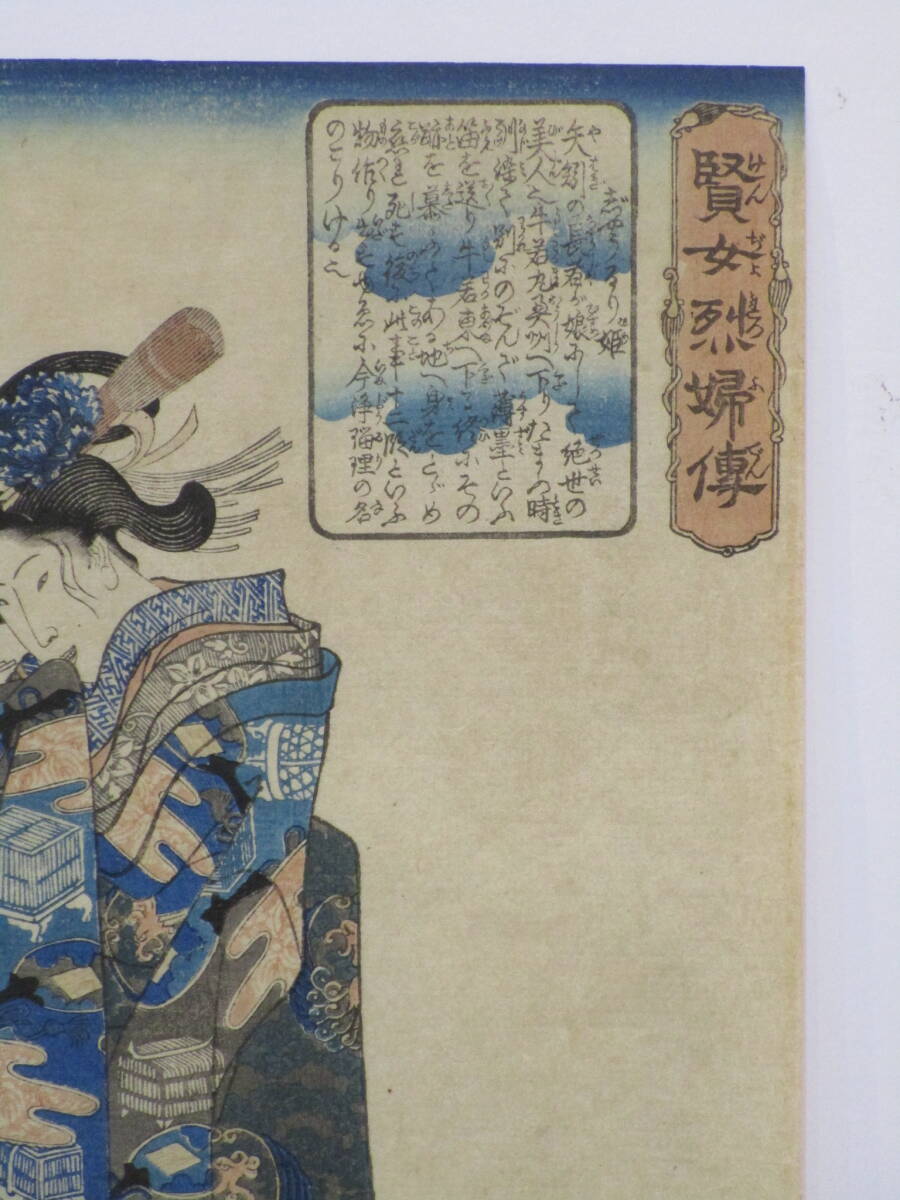 賢女烈婦傳
けんぢよれつふでん
じやうるり姫
矢矧の長者が娘にして絶世の
美人也牛若丸奥州へ下りたまふ時
別にのぞんで薄墨といふ
笛を送り牛若東へ下る終にその
跡を慕ふてある地へ身をとゞめ
死す後に此事十二段といふ
物作り今浄瑠理の名
のこりける也